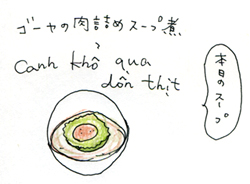 ゴーヤの肉詰めスープ煮
Canh khổ qua
dồn thịt
本日のスープ